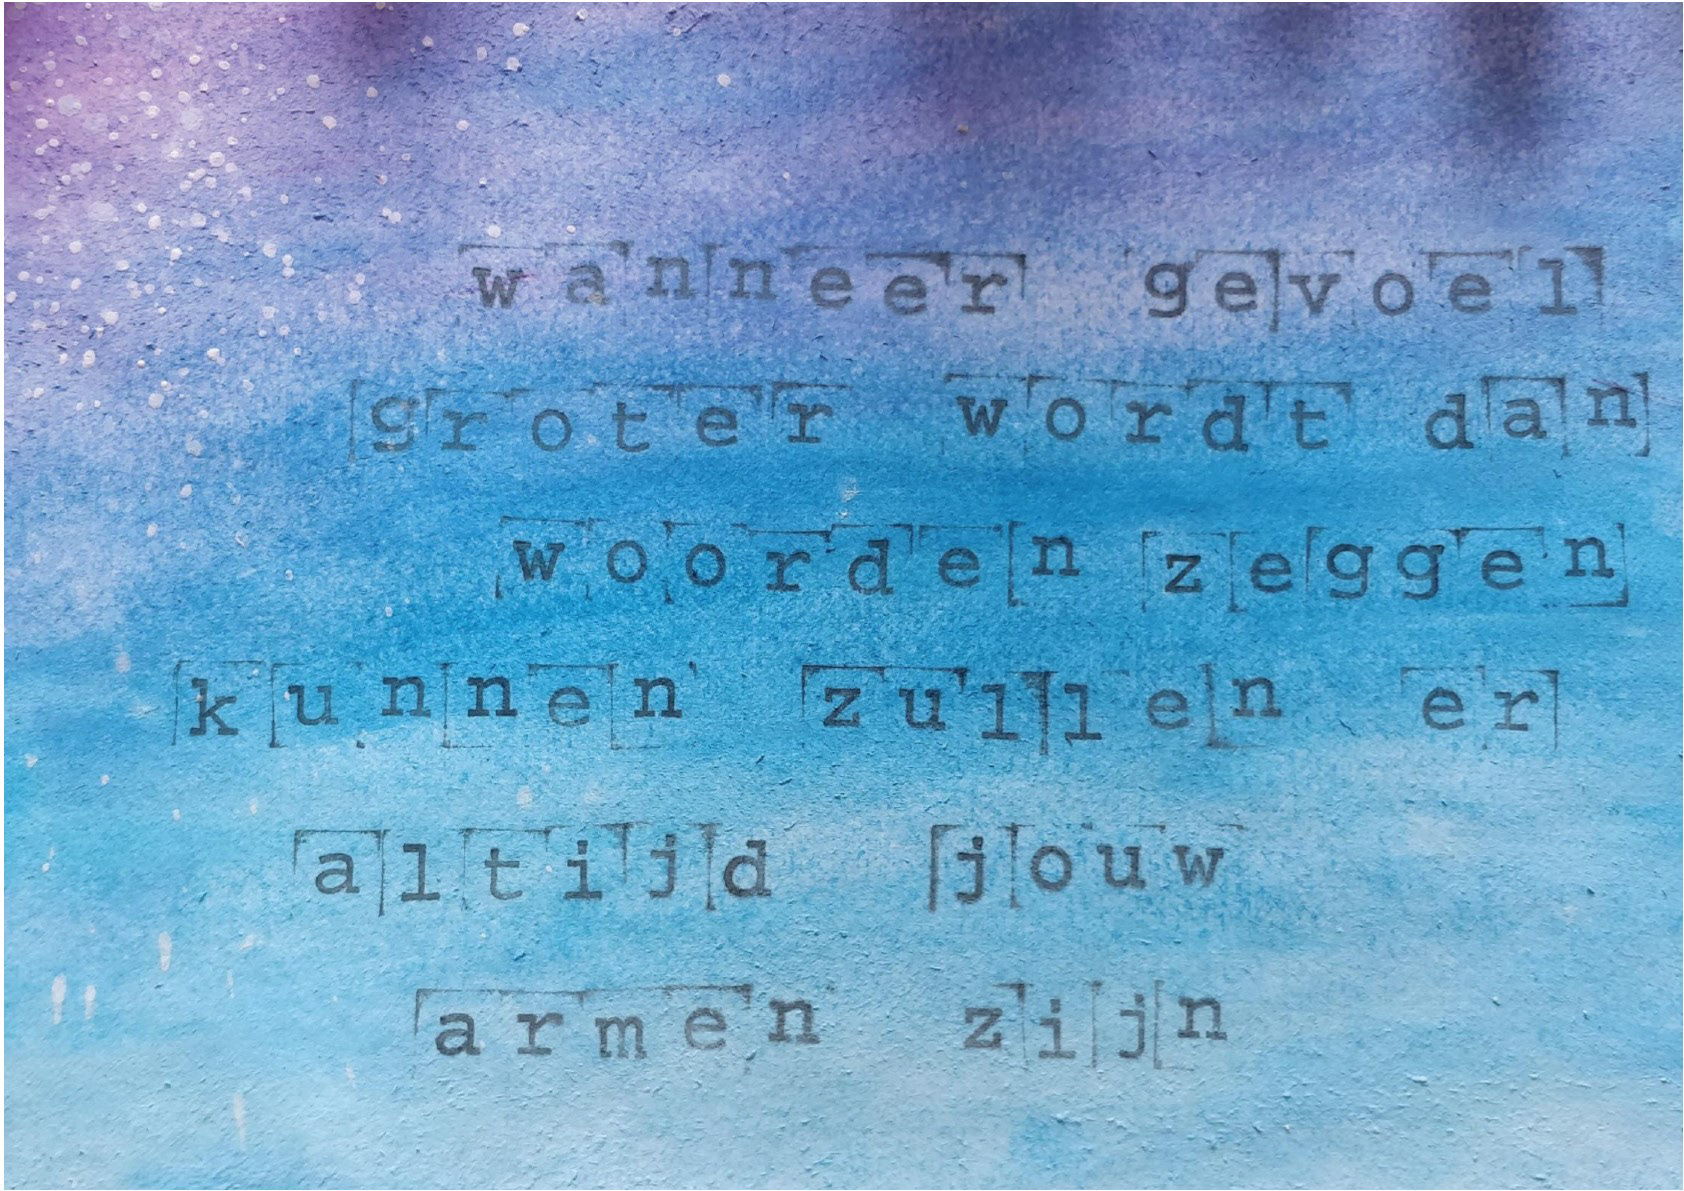 wanneer gevoel
groter wordt dan
woorden zeggen
kunnen zullen er
altijd jouw
armen zijn